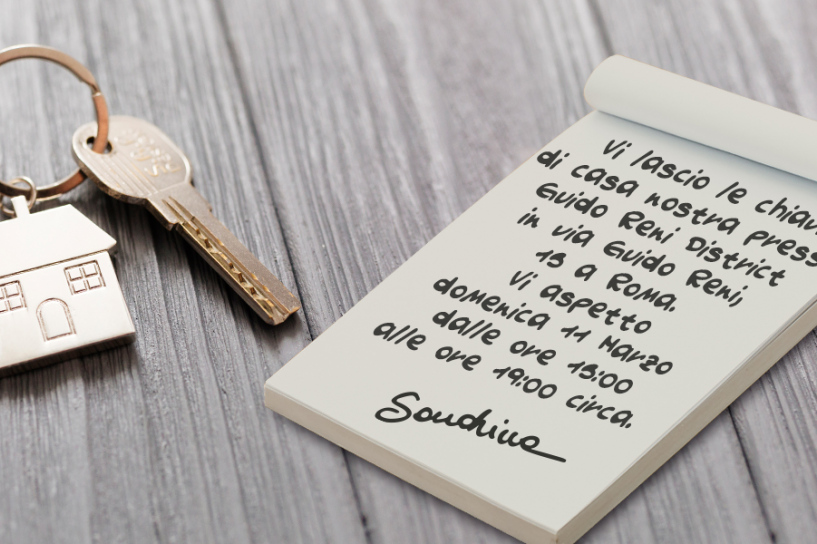 Vi lascio le
di casa nostra
Guido Reni District
in via Guido Reni,
15 a Roma.
Vi aspetto
domenica 11 Marzo
dalle ore 15:00
alle ore 19:00 circa.